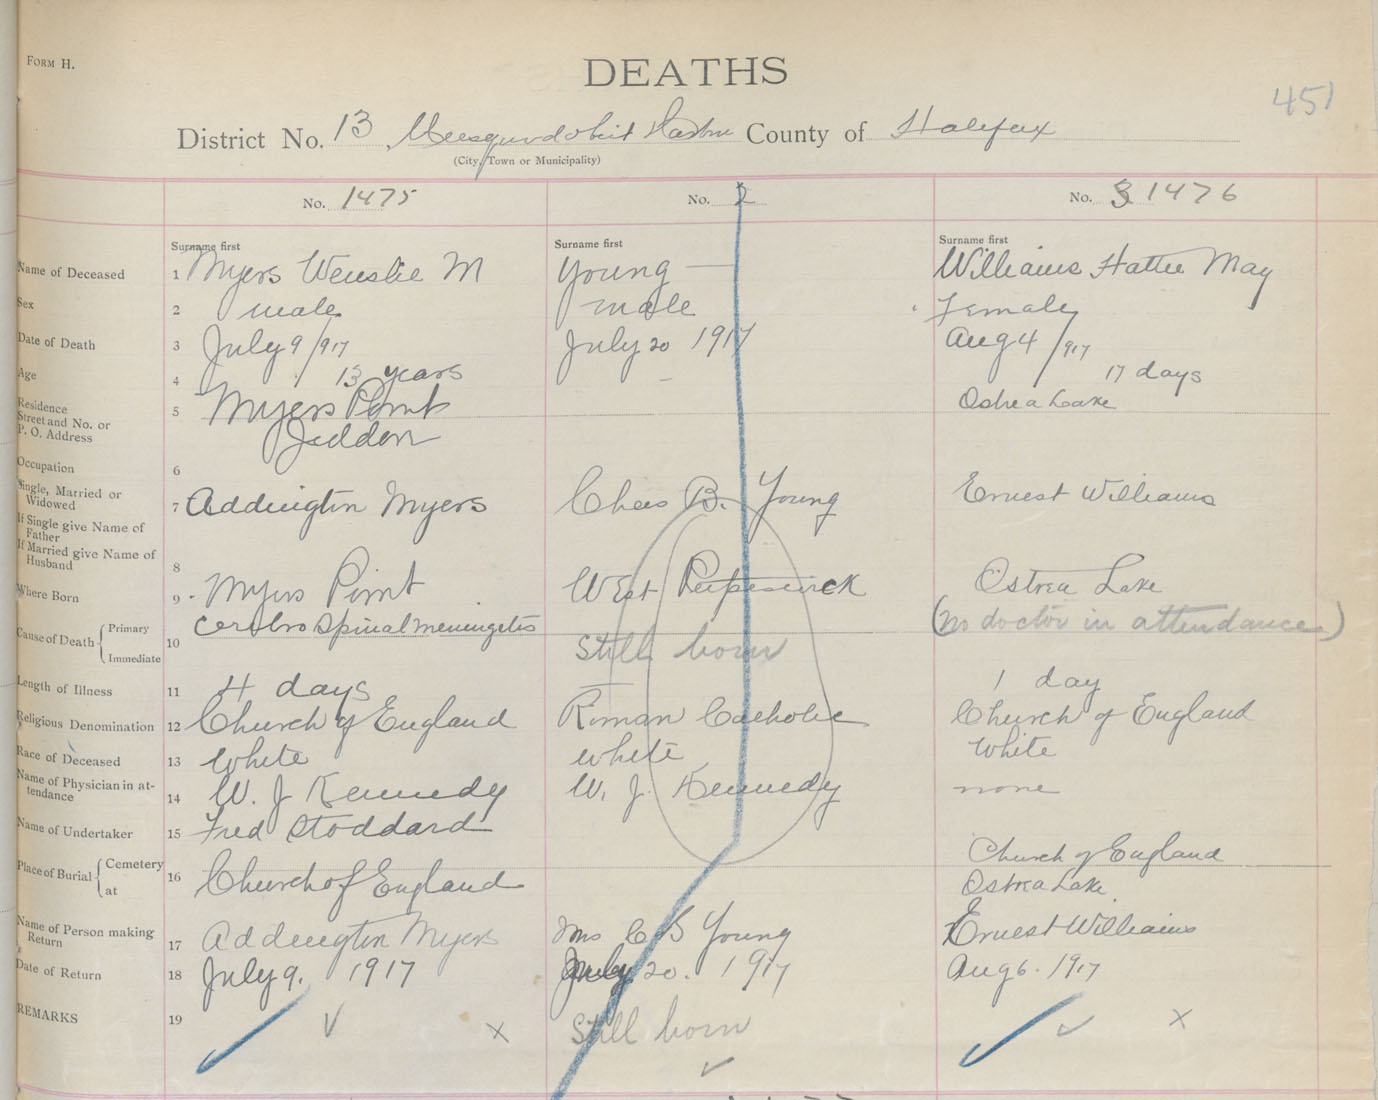 FORM H.
DEATHS
451
District No. 13 Musquodoboit Harbor County of Halifax
(City, Town or Municipality)
No. 1475
No. 2
No. 3 1476
Surname first
Surname first
Surname first
Name of Deceased 1 Myers Wenslie M
Young —
Williams Hattie May
Sex 2 male
male
Female
Date of Death 3 July 9/917
July 20 1917
Aug 4/917
Age 4 13 years
–
17 days
Residence
Street and No. or
P. O. Address
5 Myers Point
Jeddore
Ostrea Lake
Occupation 6
Single, Married or
Widowed
If Single give Name of
Father
If Married give Name of
Husband
7 Addington Myers
Chas B. Young
Ernest Williams
8
Where Born 9 Myers Point
West Petpeswick
Ostrea Lake
Cause of Death Primary
Immediate
10 Cerebro Spinal Meningetis
Still born
(No doctor in attendance)
Length of Illness 11 4 days
—
1 day
Religious Denomination 12 Church of England
Roman Catholic
Church of England
Race of Deceased 13 White
white
White
Name of Physician in at-
tendance
14 W. J Kennedy
W. J. Kennedy
none
Name of Undertaker 15 Fred Stoddard
Place of Burial Cemetery
at
16 Church of England
Church of England
Ostrea Lake
Name of Person making
Return
17 Addington Myers
Mrs C B Young
Ernest Williams
Date of Return 18 July 9. 1917
July 20. 1917
Aug 6. 1917
REMARKS 19
Still born